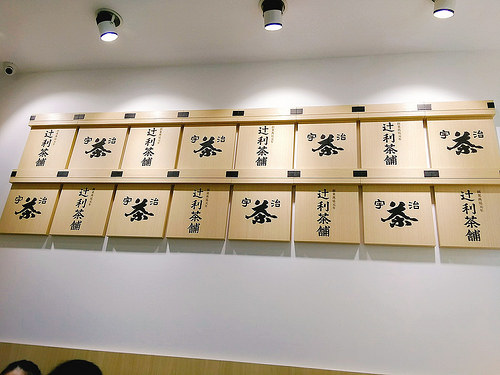 辻利茶舗
宇治
茶
辻利茶舗
宇治
茶
辻利茶舗
宇治
茶
辻利茶舗
宇治
茶
宇治
茶
辻利茶舗
宇治
茶
辻利茶舗
宇治
茶
辻利茶舗
宇治
茶
辻利茶舗